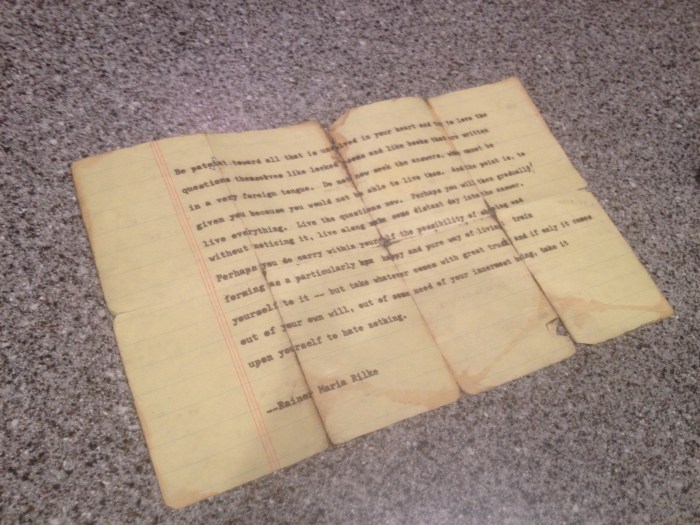 Be patient toward all that is unsolved in your heart and try to love the
questions themselves like locked rooms and like books that are written
in a very foreign tongue. Do not now seek the answers, which cannot be
given you because you would not be able to live them. And the point is, to
live everything. Live the questions now. Perhaps you will then gradually,
without noticing it, live along some distant day into the answer.
Perhaps you do carry within yourself the possibility of shaping and
forming as a particularly happy and pure way of living; train
yourself to it -- but take whatever comes with great trust, and if only it comes
out of your own will, out of some need of your innermost being, take it
upon yourself to hate nothing.
--Rainer Maria Rilke